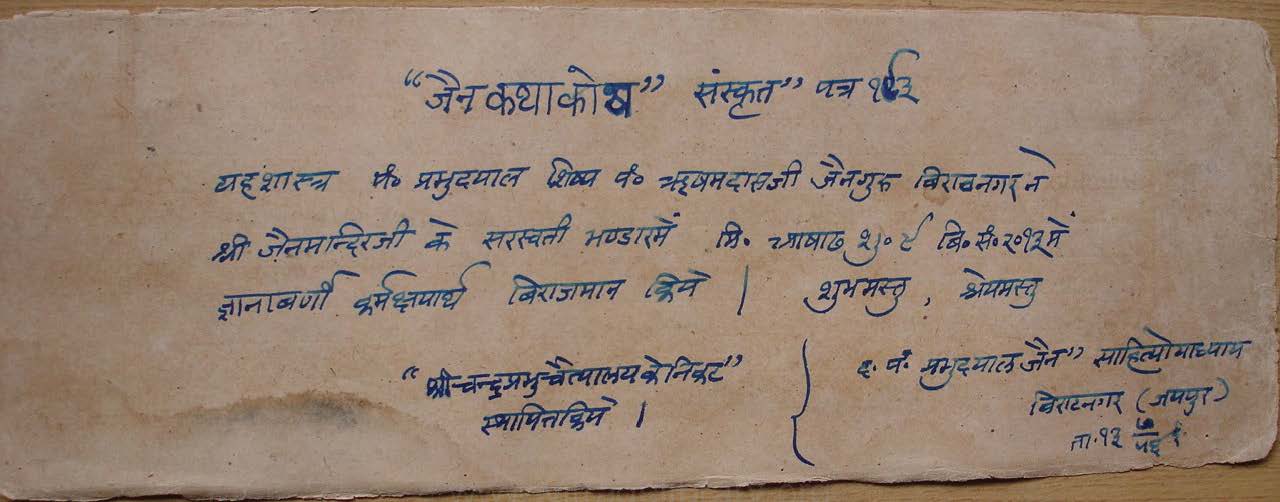 “जैन कथाकोष” संस्कृत” पत्र
यह शास्त्र पं० प्रभुदयाल शिष्य पं० ऋषभदासजी जैनगुरु विराटनगर ने
श्री जैनमन्दिरजी के सरस्वती भण्डारमें मि० आषाढ शु० ८ बि० सं० २०१३ में
ज्ञानाबर्णी कर्मक्षयार्थ बिराजमान किये | शुभमस्तु, श्रेयमस्तु
“श्री चन्द्रप्रभु चैत्यालय के निकट”
स्थापित किये |
ह. पं. प्रभुदयाल जैन” साहित्योपाध्याय
विराटनगर (जयपुर)
ता. १३